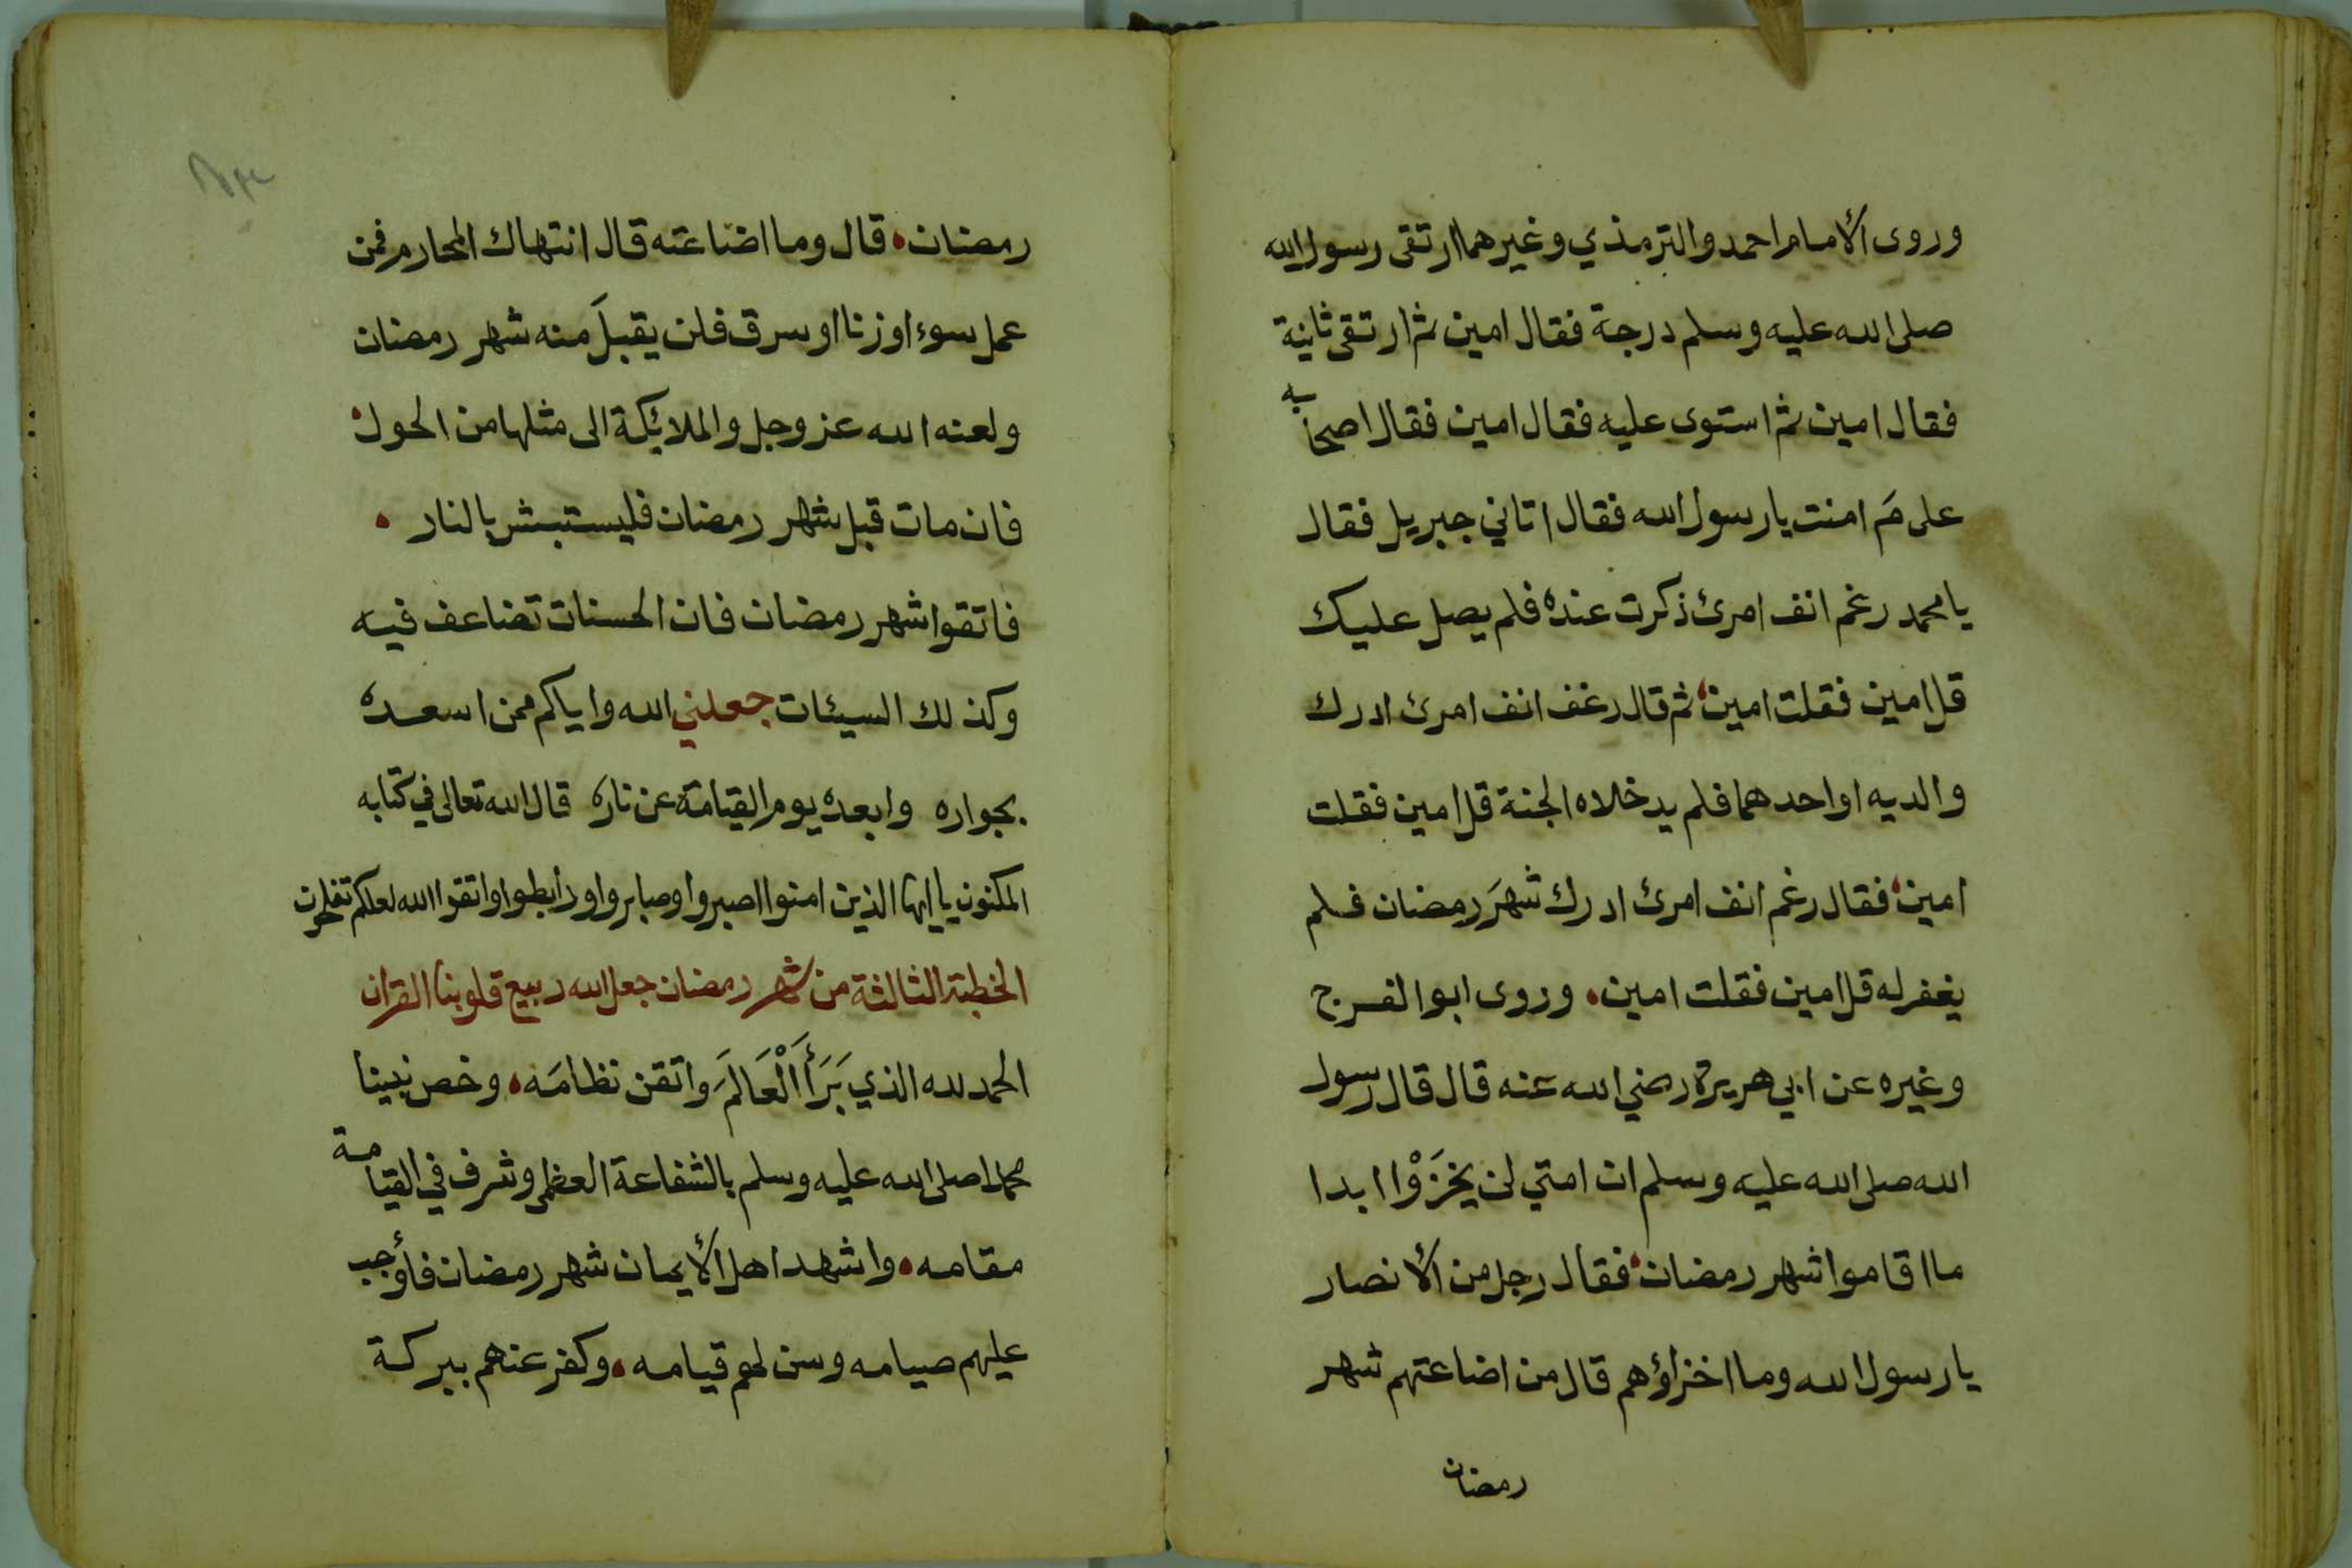 وروى الأمام احمد والترمذي وغيرهما ارتقى رسول الله
صلى الله عليه وسلم درجة فقال امين ثم ارتقى ثانية
فقال امين ثم استوى عليه فقال امين فقال اصحابه
على مَ امنت يا رسول الله فقال اتاني جبريل فقال
يا محمد رغم انف امرئ ذكرت عنده فلم يصل عليك
قل امين فقلت امين ثم قال رغف انف امرئ ادرك
والديه او احدهما فلم يدخلاه الجنة قل امين فقلت
امين فقال رغم انف امرئ ادرك شهرَ رمضان فلم
يغفر له قل امين فقلت امين • وروى ابوا الفرج
وغيره عن ابي هريرة رضي الله عنه قال قال رسول
الله صلى الله عليه وسلم ان امتي لن يخزَوْا ابدا
ما اقاموا شهر رمضان فقال رجل من الأنصار
يا رسول الله وما اخزاؤهم قال من اضاعتهم شهر
رمضان
رمضان • قال وما اضاعته قال انتهاك المحارم فمن
عمل سوء او زنا او سرق فلن يقبلَ منه شهر رمضان
ولعنه الله عز وجل والملائكة الى مثلها من الحول
فان مات قبل شهر رمضان فليستبشر بالنار •
فاتقوا شهر رمضان فان الحسنات تضاعف فيه
وكذلك السيئات جعلني الله واياكم ممن اسعده
بجواره وابعده يوم القيامة عن ناره قال الله تعالى في كتابه
المكنون يا ايها الذين امنوا اصبروا وصابروا ورابطوا واتقوا الله لعلكم تفلحون
الخطبة الثالثة من شهر رمضان جعل الله ربيع قلوبنا القران
الحمد لله الذي بَرَأَ الْعَالَمَ واتقن نظامَه • وخص نبينا
محمدا صلى الله عليه وسلم بالشفاعة العظمى وشرف في القيامة
مقامه • واشهد اهل الأيمان شهر رمضان فأوجب
عليهم صيامه وسن لهم قيامه • وكفر عنهم ببركة